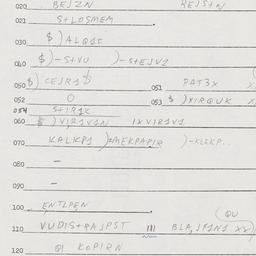 020 BEJZN REJS+N
021 S+LOSMEM
030 $ ) ALQ1S
040 $ ) -S+VU ) -S+EJV1
050 $ ) CEJR1 051 PAT3X
052 O 053 $ ) XIRQUK X
054 S+IR1K
060 $ ) VIR1V1N IXVIR1V1
070 KALKP1 ) =MEKPAPIR ) -KLEKP..
080 –
090 –
100 ENTLPEN (QU
110 VUDIS+RAJPST III BLA,JF1N1 XX)
120 Q1 KOPIRN